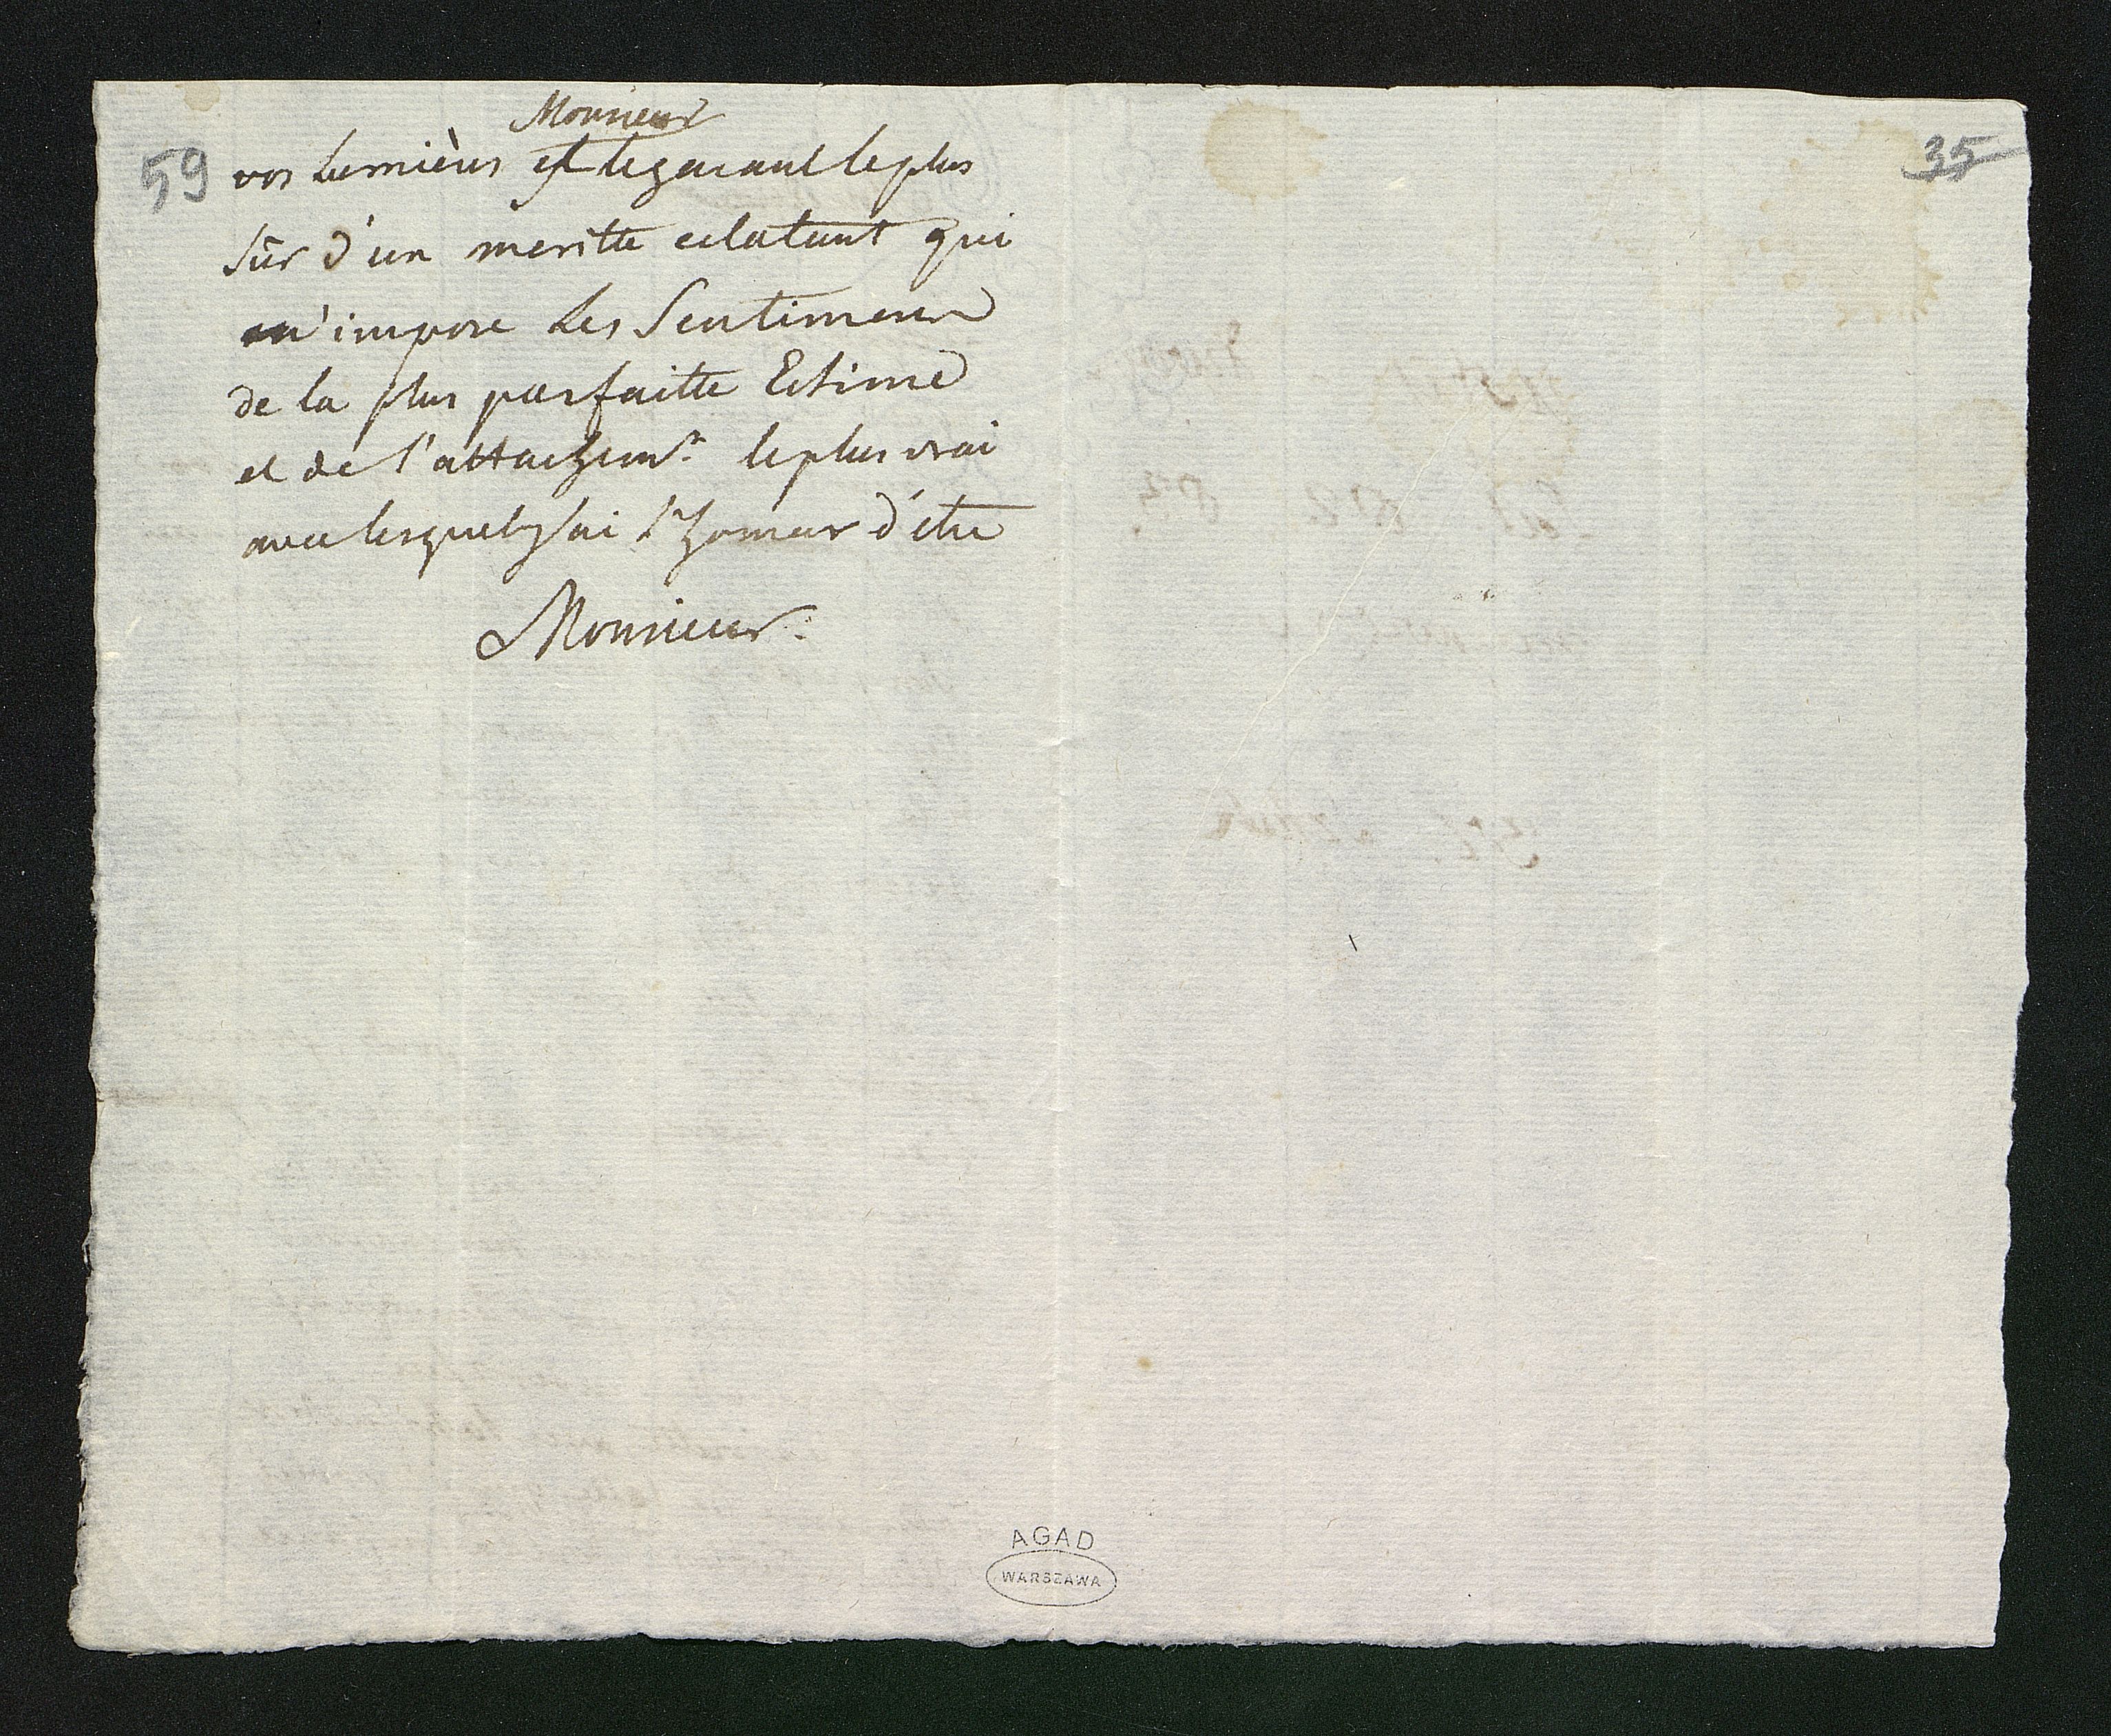 Monsieur
59 vos Lumières est le garant le plus
sûr d'un meritte eclatant qui
m'impose Les Sentimens
de la plus parfaitte Estime
et de l'attachemt. le plus vrai
avec lesquels j'ai l'honneur d'être
Monsieur.
35
AGAD
WARSZAWA